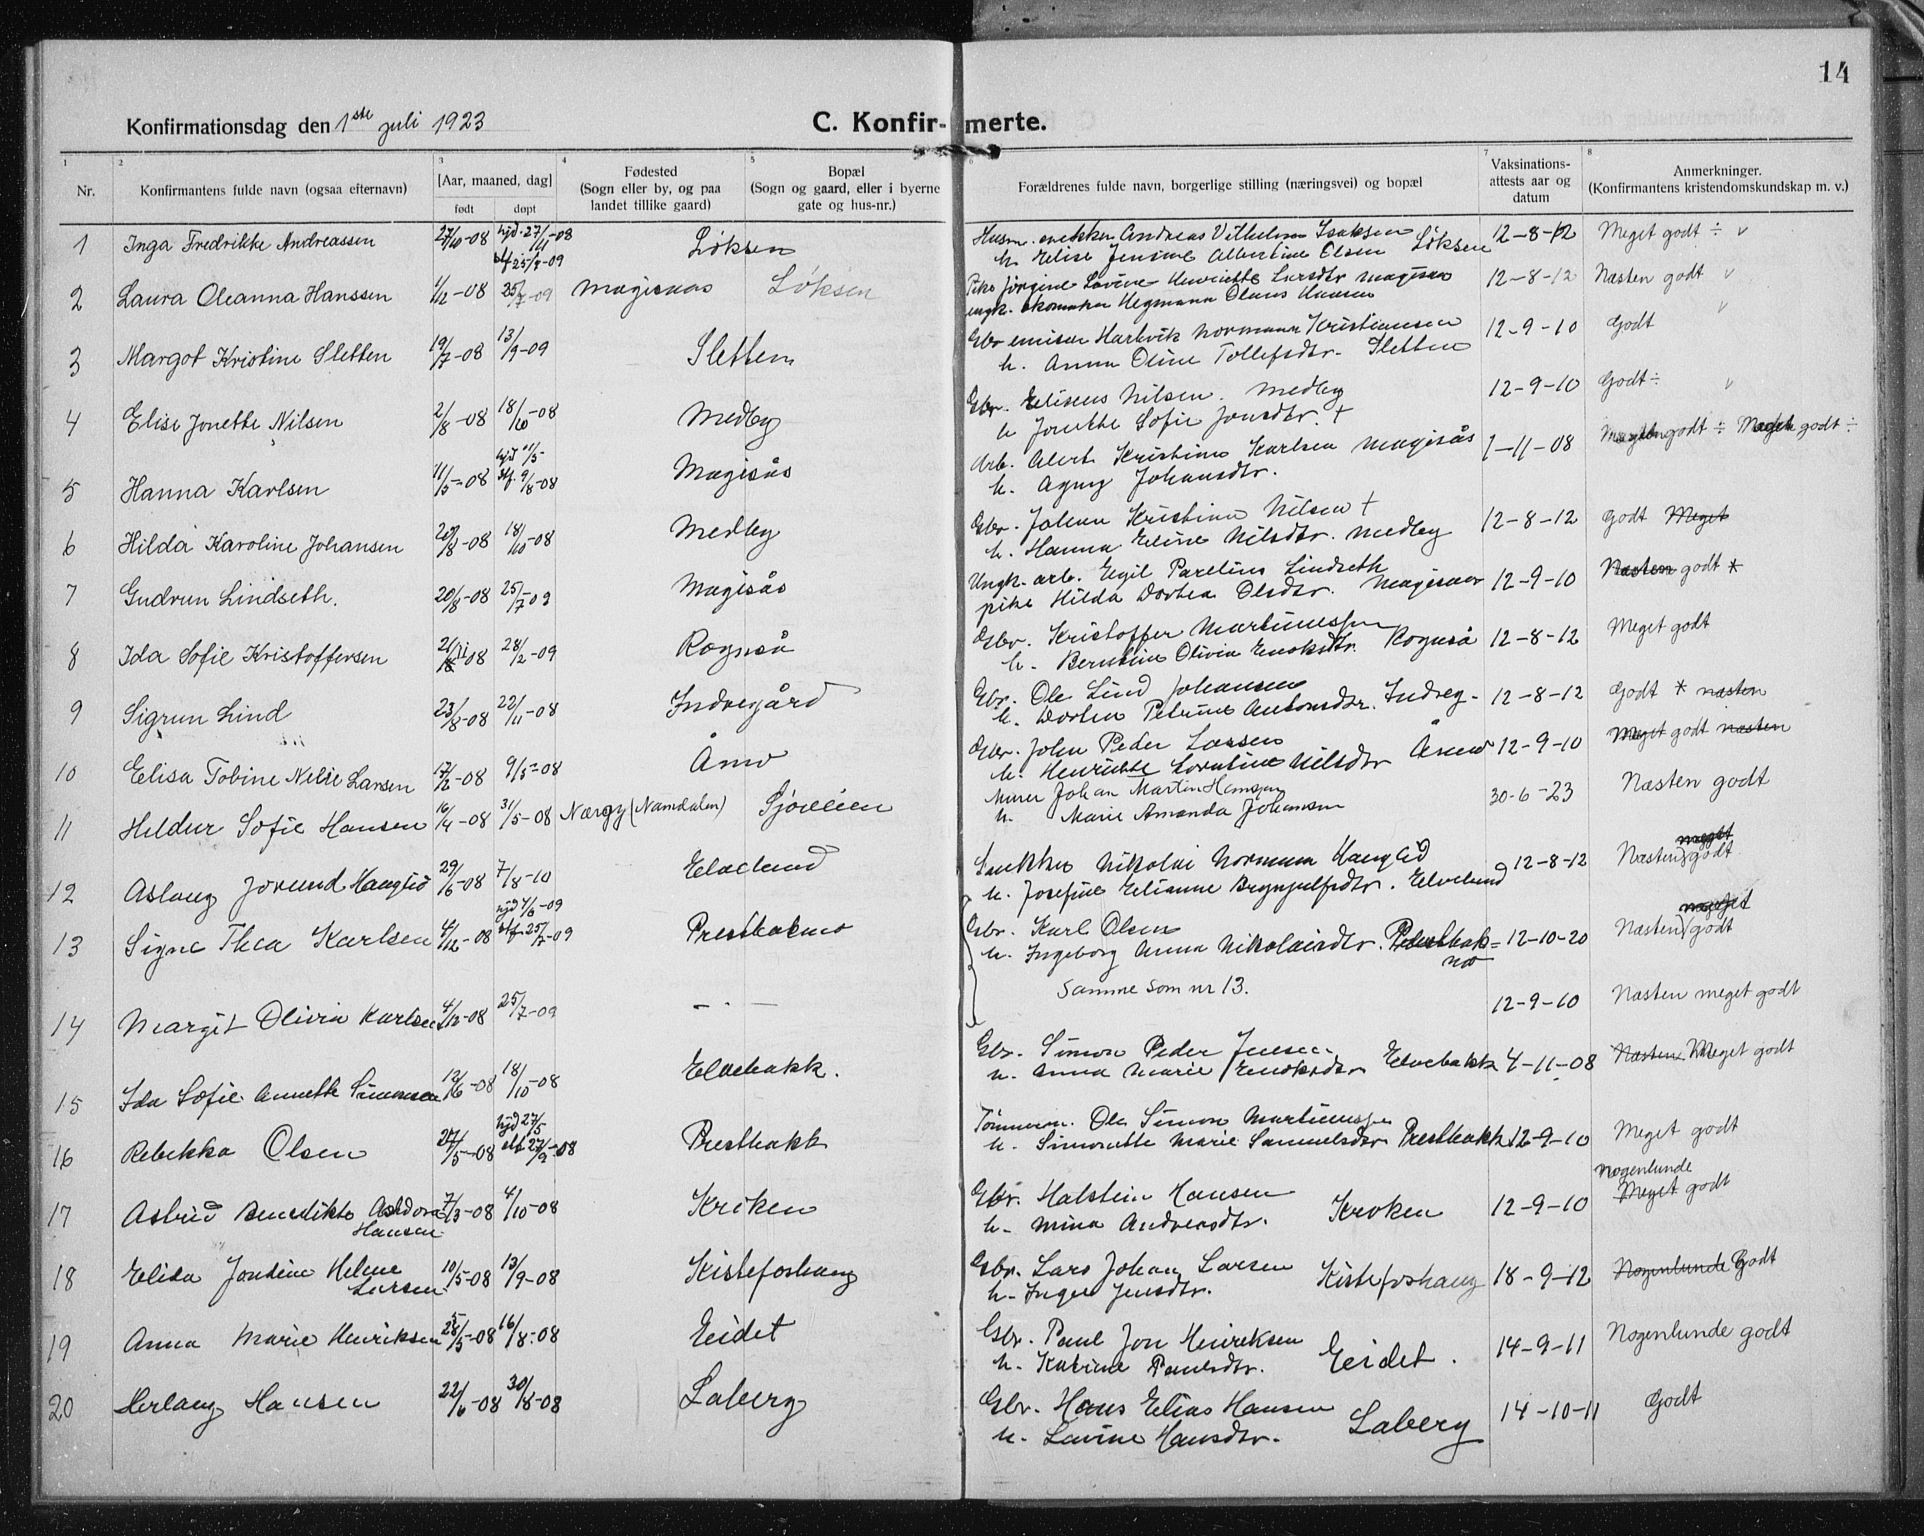 14
Konfirmationsdag den 1ste juli 1923
C. Konfirmerte.
1 2 3 4 5 7 8
Nr. Konfirmantens fulde navn (ogsaa efternavn) [Aar, maaned, dag] født døpt Fødested (Sogn eller by, og paa landet tillike gaard) Bopæl (Sogn og gaard, eller i byerne gate og hus-nr.) Forældrenes fulde navn, borgerlige stilling (næringsvei) og bopæl Vaksinations-attests aar og datum Anmerkninger. (Konfirmantens kristendomskundskap m. v.)
1 Inga Fredrikke Andreassen 27/10-08 hjd. 27/11-08 Løksen Andreas Vilhelm Isaksen 12-8-12 Meget godt ÷ v
stf 25/7-09 h. Elise Jensine Albertine Olsen Løksen
2 Laura Oleanna Hanssen 1/12-08 25/7-09 Magisaas Løksen Pike Jørgine Lovine Henriette Larsdtr Magisaas 12-8-12 Næsten godt v
ungk. Hegmann Olaus Hansen
3 Margot Kristine Sletten 19/7-08 13/9-09 Sletten Gbr Hartvik Normann Kristiansen 12-9-10 Godt v
h. Anna Oline Tollefsdtr. Sletten
4 Elise Jonette Nilsen 2/8-08 18/10-08 Medby Gbr. Eliseus Nilsen. Medby 12-9-10 Godt ÷ v
h Jonette Sofie Jonsdtr. +
5 Hanna Karlsen 11/5-08 hjd 11/5- stf. 9/8-08 Magisås Arb. Albert Kristian Karlsen Magisås 1-11-08 godt ÷ Meget godt ÷
h. Agnes Johansdtr.
6 Hilda Karoline Johansen 20/8-08 18/10-08 Medby Gbr. Johan Kristian Nilsen + 12-8-12 Godt Meget
h. Hanna Eline Nilsdtr. Medby
7 Gudrun Lindseth. 20/8-08 25/7-09 Magisås Ungk. arb. Egil Parelius Lindseth 12-9-10 Næsten godt *
pike Hilda Dortea Olsdtr. Magisaas
8 Ida Sofie Kristoffersen 21/11-08 28/2-09 Rognså Gbr. Kristoffer Martinussen 12-8-12 Meget godt
h. Berntine Olivia Enoksdtr. Rognså
9 Sigrun Lind 23/8-08 22/11-08 Indregård Gbr. Ole Lind Johansen 12-8-12 Godt * næsten
h. Dortea Petrine Antonsdtr. Indreg-
10 Elisa Tobine Nilsie Larsen 17/2-08 9/5-08 Åmo Gbr. John Peder Larsen 12-9-10 Meget godt næsten
h. Henriette Lorntine Nilsdtr Åmo
11 Heldur Sofie Hansen 16/4-08 31/5-08 Nærøy (Namdalen) Sjøveien Murer Johan Martin Hansen 30-6-23 Næsten godt
h. Marie Amanda Johansen
12 Aslaug Jorund Hanglid 29/6-08 7/8-10 Elvelund Snekker Nikolai Normann Hanglid 12-8-12 Næsten meget godt
h. Josefine Elianne Brynjulfsdtr. Elvelund
13 Signe Thea Karlsen 4/12-08 hjd 4/6-09 stf 25/7-09 Prestbakmo Gbr. Karl Olsen 12-10-20 Næsten meget godt
h. Ingeborg Anna Nikolaisdtr. Prestbak=
mo
14 Margit Olivia Karlsen 4/12-08 25/7-09 - - - Samme som nr 13. 12-9-10 Næsten meget godt
15 Ida Sofie Annette Simonsen 12/6-08 18/10-08 Elvebakk. Gbr. Simon Peder Jensen 4-11-08 Næsten Meget godt
h. Anna Marie Enoksdtr Elvebakk
16 Rebekka Olsen 27/5-08 hjd 27/5 stf 27/9-08 Prestbakk Tømmerm. Ole Simon Martinussen 12-9-10 Meget godt
h. Simonette Marie Samuelsdtr Prestbakk
17 Astrid Benedikte Aldora Hansen 7/3-08 4/10-08 Kroken Gbr. Halstein Hansen 12-9-10 Nogenlunde Meget godt
h. Mina Andreasdtr. Kroken
18 Elida Jondine Helene Larsen 10/5-08 13/9-08 Kistefoshaug Gbr. Lars Johan Larsen 18-9-12 Nogenlunde Godt
h. Inger Jensdtr. Kistefoshaug
19 Anna Marie Henriksen 28/5-08 16/8-08 Eidet Gbr. Paul Jon Henriksen 14-9-11 Nogenlunde godt
h. Katrine Paulsdtr. Eidet.
20 Herlaug Hansen 22/6-08 30/8-08 Laberg Gbr. Hans Elias Hansen 14-10-11 Godt
h. Lavine Hansdtr. Laberg